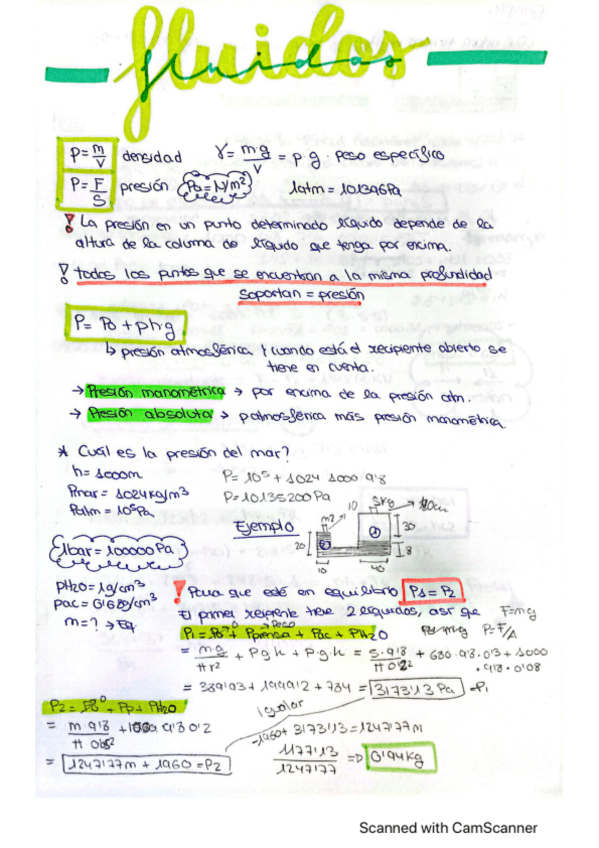 fluidos
fluidos
P = m/V densidad γ = m·g/V = p·g · peso específico
P = F/S presión Pa = N/m² 1atm = 101396Pa
! La presión en un punto determinado líquido depende de la
altura de la columa de líquido que tenga por encima.
! todos los puntos que se encuentran a la misma profundidad
soportan = presión
P = Po + p·h·g
↳ presión atmosférica y cuando está el recipiente abierto se
tiene en cuenta.
→ Presión manométrica → por encima de la presión atm.
→ Presión absoluta → patmosférica más presión manométrica
* Cuál es la presión del mar?
h = 1000m P = 10⁵ + 1024 · 1000 · 9'8
Pmar = 1024 kg/m³ P = 10135200 Pa
Patm = 10⁵Pa
Ejemplo
m? 10 5kg
20 30
8
10 40
1bar = 100000 Pa
PH2O = 1g/cm³
pac = 0'680g/cm³
m = ?
! Para que esté en equilibrio P1 = P2
El primer recipiente tiene 2 líquidos, así que F=mg
P=F/A
Peso
P1 = Po⁰ + Pprensa + Pac + PH2O
= mg/πr² + p·g·h + p·g·h = 5·9'8/π0'2² + 680·9'8·0'3 + 1000
·9'8·0'08
= 389'93 + 1999'2 + 784 = 3173'13 Pa = P1
P2 = Po⁰ + Pp + PH2O
igualar
= m·9'8/π 0'05² + 1000 · 9'8 · 0'2
-1960 + 3173'13 = 1247'77m
= 1247'77m + 1960 = P2
1177'13/1247'77 => 0'94kg
Scanned with CamScanner